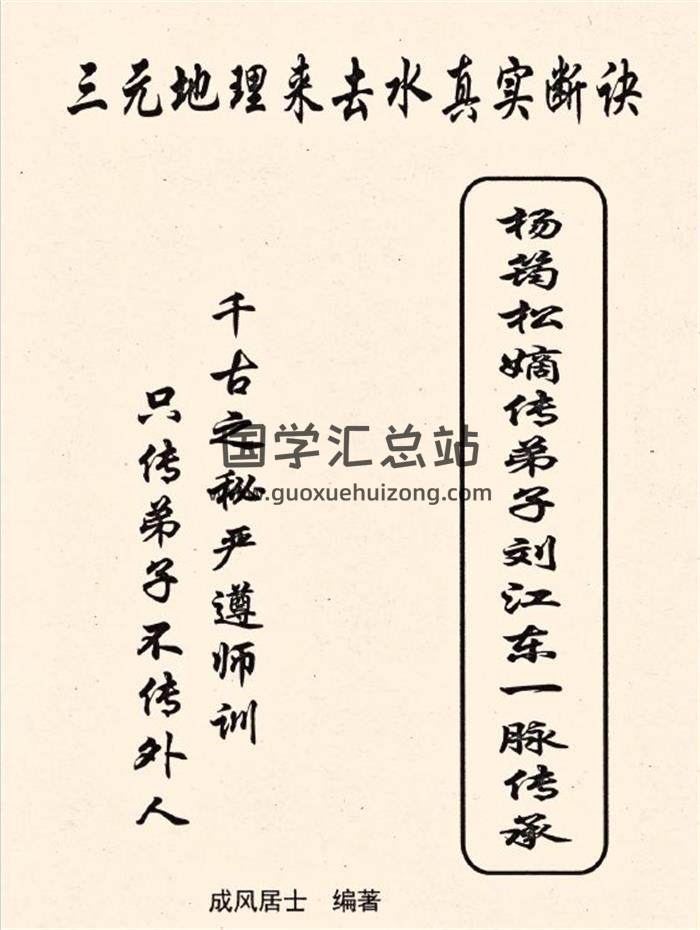 三元地理来去水真实断诀
杨筠松嫡传弟子刘江东一脉传承
千古之秘严遵师训
只传弟子不传外人
国学汇总站
www.guoxuehuizong.com
成风居士 编著